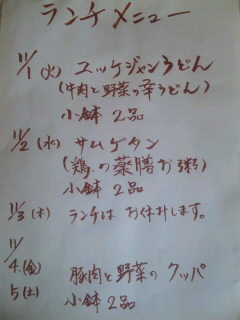 ランチメニュー
11/1(火) ユッケジャンうどん
(牛肉と野菜の辛うどん)
小鉢2品
11/2(水) サムゲタン
(鶏の薬膳お粥)
小鉢2品
11/3(木) ランチはお休みします。
11/
4(金) 豚肉と野菜のクッパ
5(土) 小鉢2品